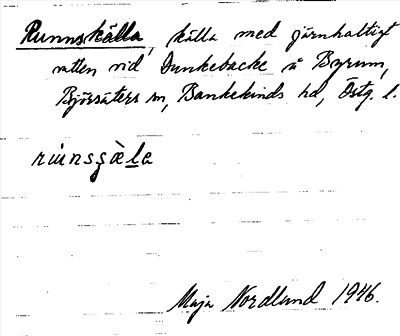 Runnskälla, källa med järnhaltigt
vatten vid Dunkebacke å Byrum,
Björsäters sn, Bankekinds hd, Östg. l.
Maja Nordlund 1946.